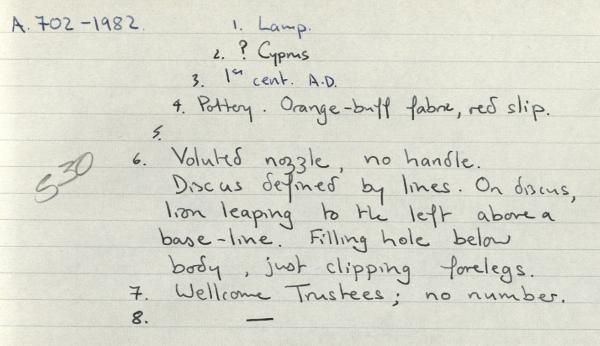 A. 702-1982. 1. Lamp.
2. ? Cyprus
3. 1st cent. A.D.
4. Pottery. Orange-buff fabric, red slip.
5.
530
6. Voluted nozzle, no handle.
Discus defined by lines. On discus,
lion leaping to the left above a
base-line. Filling hole below
body, just clipping forelegs.
7. Wellcome Trustees; no number.
8. —